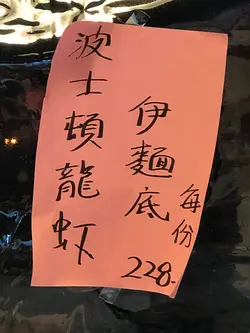 波士頓龍虾
伊麵底
每份
228.-